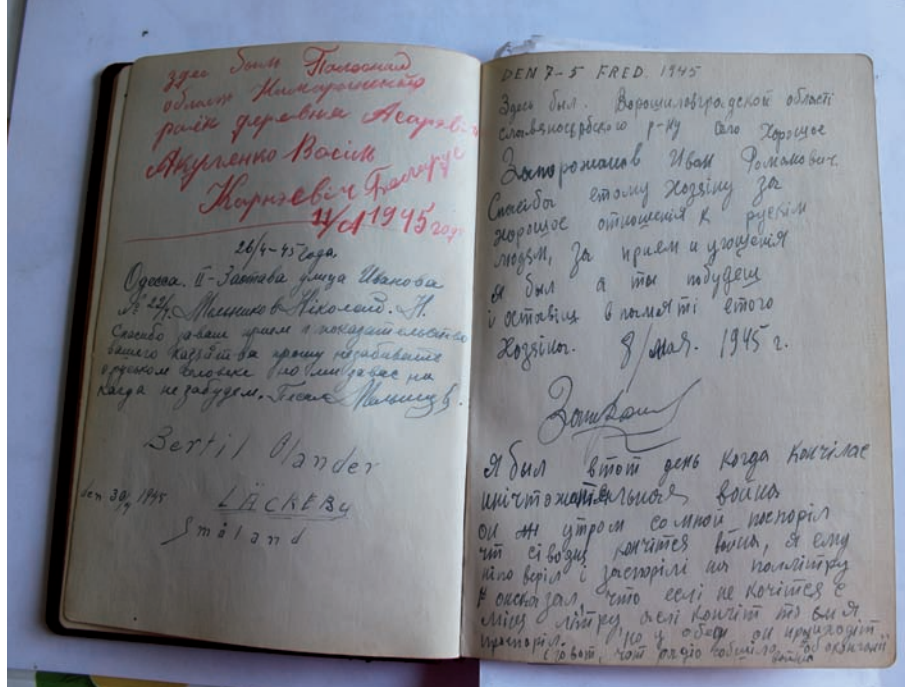 здесь был Полоская
област
раён деревня
Акуленко Васіль
Карнэевіч Беларус
11/ 1945 год
26/4-45 года.
Одесса. II-Застава улица Иванова
№ 22/ Мельников Ніколай. Н.
Спасибо заваш прием
вашего прошу незабывайте
о руском человеке но ми завас ни
когда незабудем. Писал
Bertil Olander
den 30/4 1945
LÄCKEBY
Småland
DEN 7-5 FRED. 1945
Здесь был. Ворошиловградской области
славяносербского р-ну село Хорошое
Запорожанов Иван Романович.
Спасибо етому Хозяіну за
хорошое отношенія к рускім
людям, за прием и угощенія
я был а ты побудеш
і оставіш в памяті етого
Хозяіна. 8/мая. 1945 г.
Я был втот день когда кончілас
унічтожательная война
он утром со мной поспоріл
что сіводня кончітся война, я ему
веріл і заспорілі на поллітру
я сказал, что еслі не кочітся с
меня літру еслі кончіт то он я
проспоріл. но у обед он приходіт
і говоріт, чот радіо собщіло об окончаніі
война